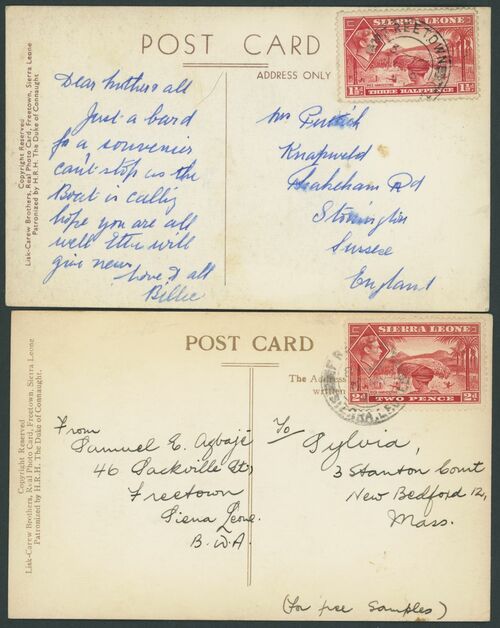 POST CARD
ADDRESS ONLY
SIERRA LEONE
1½d
RICE HARVESTING
1½d
THREE HALFPENCE
FREETOWN
Copyright Reserved
Lisk-Carew Brothers, Real Photo Card, Freetown, Sierra Leone
Patronized by H.R.H. The Duke of Connaught
Dear Mothers all
Just a card
for a souvenier
can't stop as the
Boat is calling
hope you are all
well Ettie will
give news
love to all
Billie
Mrs
Knapweld
Rd
Storrington
Sussex
England
POST CARD
The Address
written
SIERRA LEONE
2d
2d
TWO PENCE
Copyright Reserved
Lisk-Carew Brothers, Real Photo Card, Freetown, Sierra Leone
Patronized by H.R.H. The Duke of Connaught.
From
Samuel E. Agbaje
46 Sackville St,
Freetown
Siena Leone.
B.W.A.
To
Sylvia,
3 Stanton Court
New Bedford 12,
Mass.
(For free Samples)